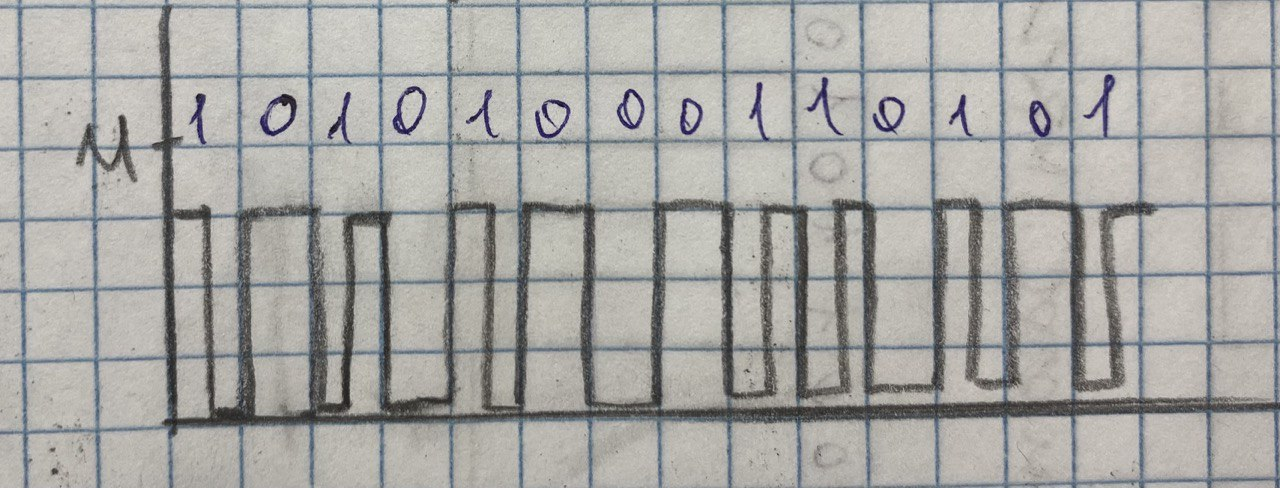 1 0 1 0 1 0 0 0 1 1 0 1 0 1
M